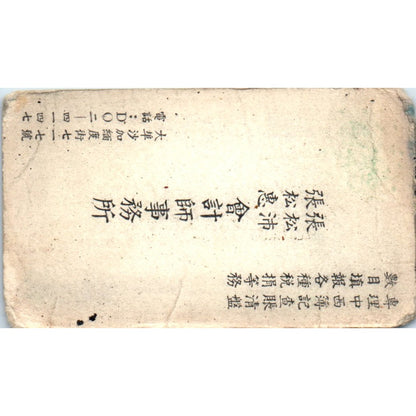 專理中西簿記查賬清盤
數目填報各種稅捐等務
張松沛
張松惠
會計師事務所
大埠沙加緬度街七一七號
電話：DO二—四一四七